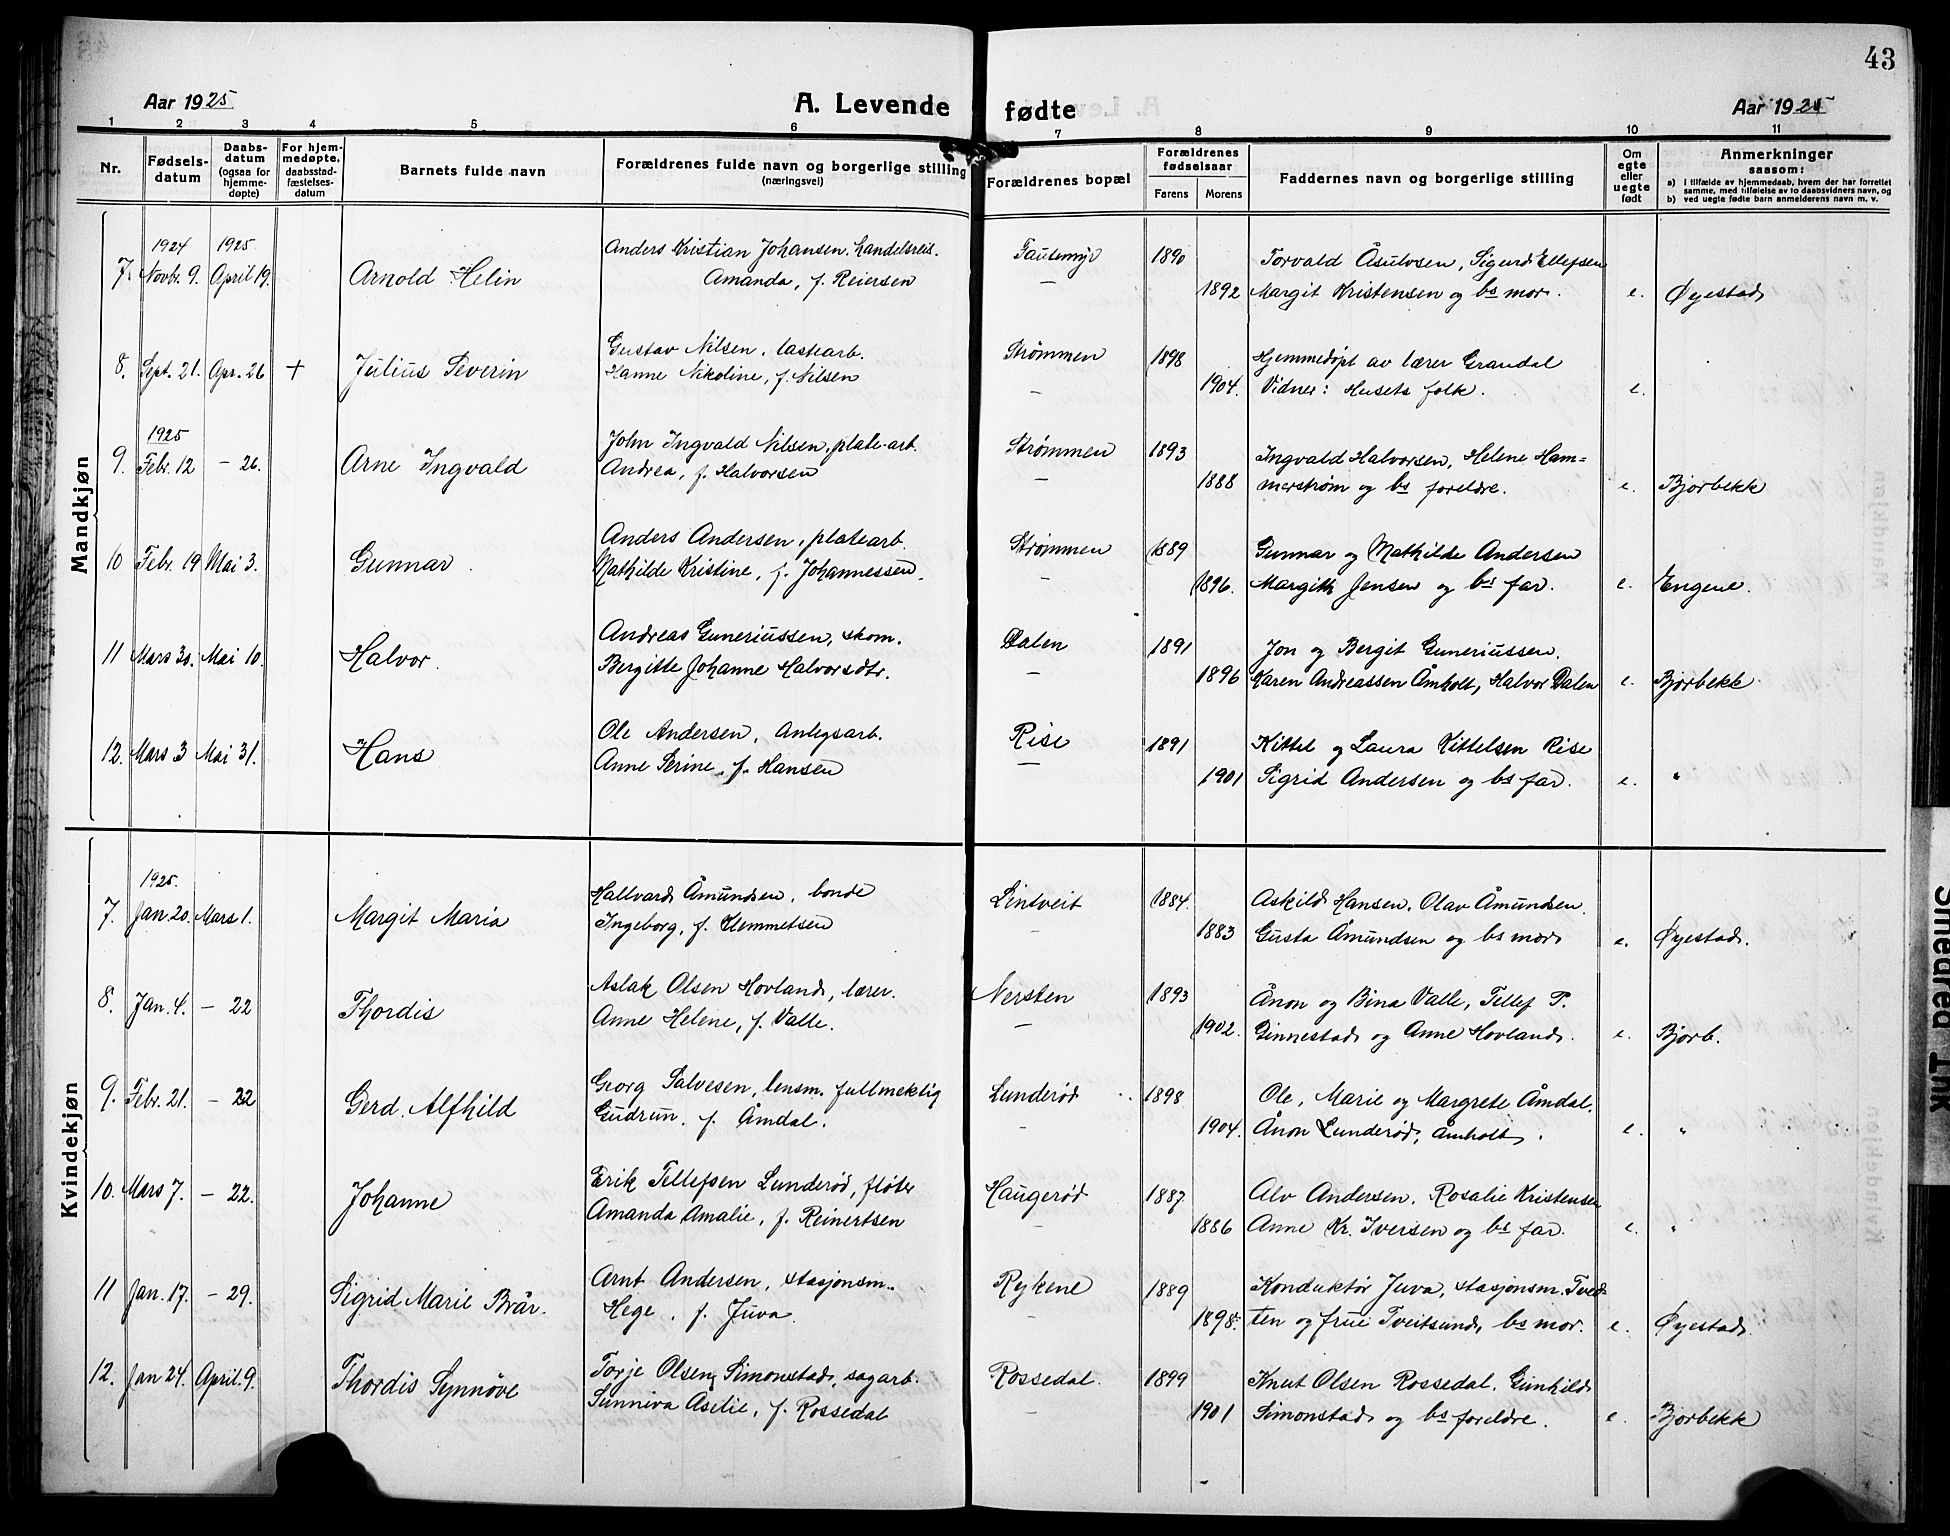 43
Aar 1925
A. Levende fødte
Aar 1925
1 2 3 4 5 6 7 8 9 10 11
Nr.
Fødsels-
datum
Daabs-
datum
(ogsaa for
hjemme-
døpte)
For hjem-
medøpte,
daabsstad-
fæstelses-
datum
Barnets fulde navn
Forældrenes fulde navn og borgerlige stilling
(næringsvei)
Forældrenes bopæl
Forældrenes
fødselsaar
Farens Morens
Faddernes navn og borgerlige stilling
Om
egte
eller
uegte
født
Anmerkninger
saasom:
a) i tilfælde av hjemmedaab, hvem der har forrettet
samme, med tilføielse av to daabsvidners navn, og
b) ved uegte fødte barn anmelderens navn m. v.
Mandkjøn
1924 1925 Anders Kristian Johansen, handelsreis. Tautemyr 1890 Torvald Åsulvsen, Sigurd Ellefsen
7. Novbr. 9. April 19. Arnold Helin Amanda, f. Reiersen — 1892 Margit Kristensen og bs mor. e. Øyestad
Gustav Nilsen, lastearb. Strømmen 1898 Hjemmedøpt av lærer Grandal
8. Sept. 21. Apr. 26 + Julius Severin Hanne Nikoline, f. Nilsen — 1904. Vidner: Husets folk. e.
1925 John Ingvald Nilsen, plate-arb. Strømmen 1893 Ingvald Halvorsen, Helene Ham=
9. Febr. 12 — 26. Arne Ingvald Andrea, f. Halvorsen — 1888 merstrøm og bs foreldre. e. Bjorbekk
Anders Andersen, platearb. Strømmen 1889 Gunnar og Mathilde Andersen
10 Febr. 19 Mai 3. Gunnar Mathilde Kristine, f. Johannessen. — 1896. Margith Jensen og bs far. e. Engene.
Andreas Guneriussen, skom. Dalen 1891 Jon og Bergit Guneriussen.
11 Mars 30. Mai 10. Halvor. Bergitte Johanne Halvorsdtr. — 1896 Karen Andreassen Åmholt, Halvor Dalen e. Bjorbekk
Ole Andersen, Anlegsarb. Rise 1891 Kittel og Laura Kittelsen Rise
12. Mars 3 Mai 31. Hans Anne Serine, f. Hansen — 1901 Sigrid Andersen og bs far. e. "
Kvindekjøn
1925. Hallvard Åmundsen, bonde Lintveit 1884. Askild Hansen, Olav Åmundsen.
7. Jan. 20. Mars 1. Margit Maria Ingeborg, f. Klemmetsen — 1883 Gusta Åmundsen og bs mor e. Øyestad.
Aslak Olsen Hovland, lærer. Nersten 1893 Ånon og Bina Valle, Tellef T.
8. Jan. 4. — 22 Thordis Anne Helene, f. Valle. — 1902. Ginnestad og Anne Hovland. e. Bjorb.
Georg Salvesen, lensm. fullmektig Lunderød 1898 Ole, Marie og Margrete Åmdal.
9. Febr. 21. — 22 Gerd Alfhild Gudrun, f. Åmdal. — 1904. Ånon Lunderød, Åmholt. e. "
Erik Tellefsen Lunderød, fløter Haugerød 1887 Alv Andersen, Rosalie Kristensen
10. Mars 7. — 22. Johanne Amanda Amalie, f. Reinertsen — 1886 Anne Kr. Iversen og bs far. e. "
Arnt Andersen, stasjonsm. Rykene 1889 Konduktør Juva, stasjonsm. Tved
11 Jan. 17. — 29. Sigrid Marie Brår. Hege, f. Juva. — 1898. ten og frue Tveitsund, bs mor. e. Øyestad.
Torje Olsen Simonstad, sagarb. Rossedal. 1899 Knut Olsen Rossedal, Gunhild
12. Jan 24. April. 9. Thordis Synnöve Sunniva Aselie, f. Rossedal — 1901 Simonstad og bs foreldre. e. Bjorbekk
Smeared Ink